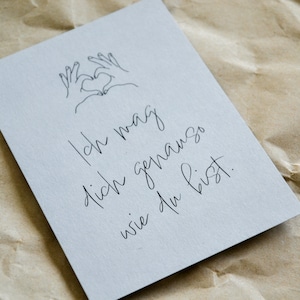 Ich mag
dich genauso
wie du bist.